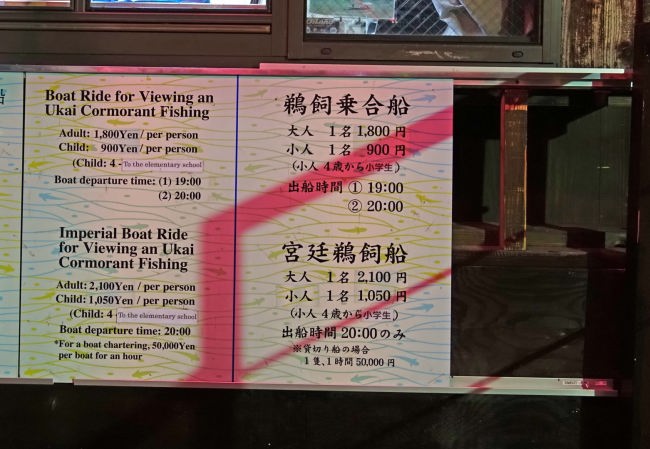 船
Boat Ride for Viewing an
Ukai Cormorant Fishing
Adult: 1,800Yen / per person
Child: 900Yen / per person
(Child: 4 - To the elementary school
Boat departure time: (1) 19:00
(2) 20:00
Imperial Boat Ride
for Viewing an Ukai
Cormorant Fishing
Adult: 2,100Yen / per person
Child: 1,050Yen / per person
(Child: 4 - To the elementary school
Boat departure time: 20:00
*For a boat chartering, 50,000Yen
per boat for an hour
鵜飼乗合船
大人 1名 1,800 円
小人 1名 900 円
(小人 4歳から小学生)
出船時間 ① 19:00
② 20:00
宮廷鵜飼船
大人 1名 2,100 円
小人 1名 1,050 円
(小人 4歳から小学生)
出船時間 20:00のみ
※貸切り船の場合
1隻、1時間 50,000 円